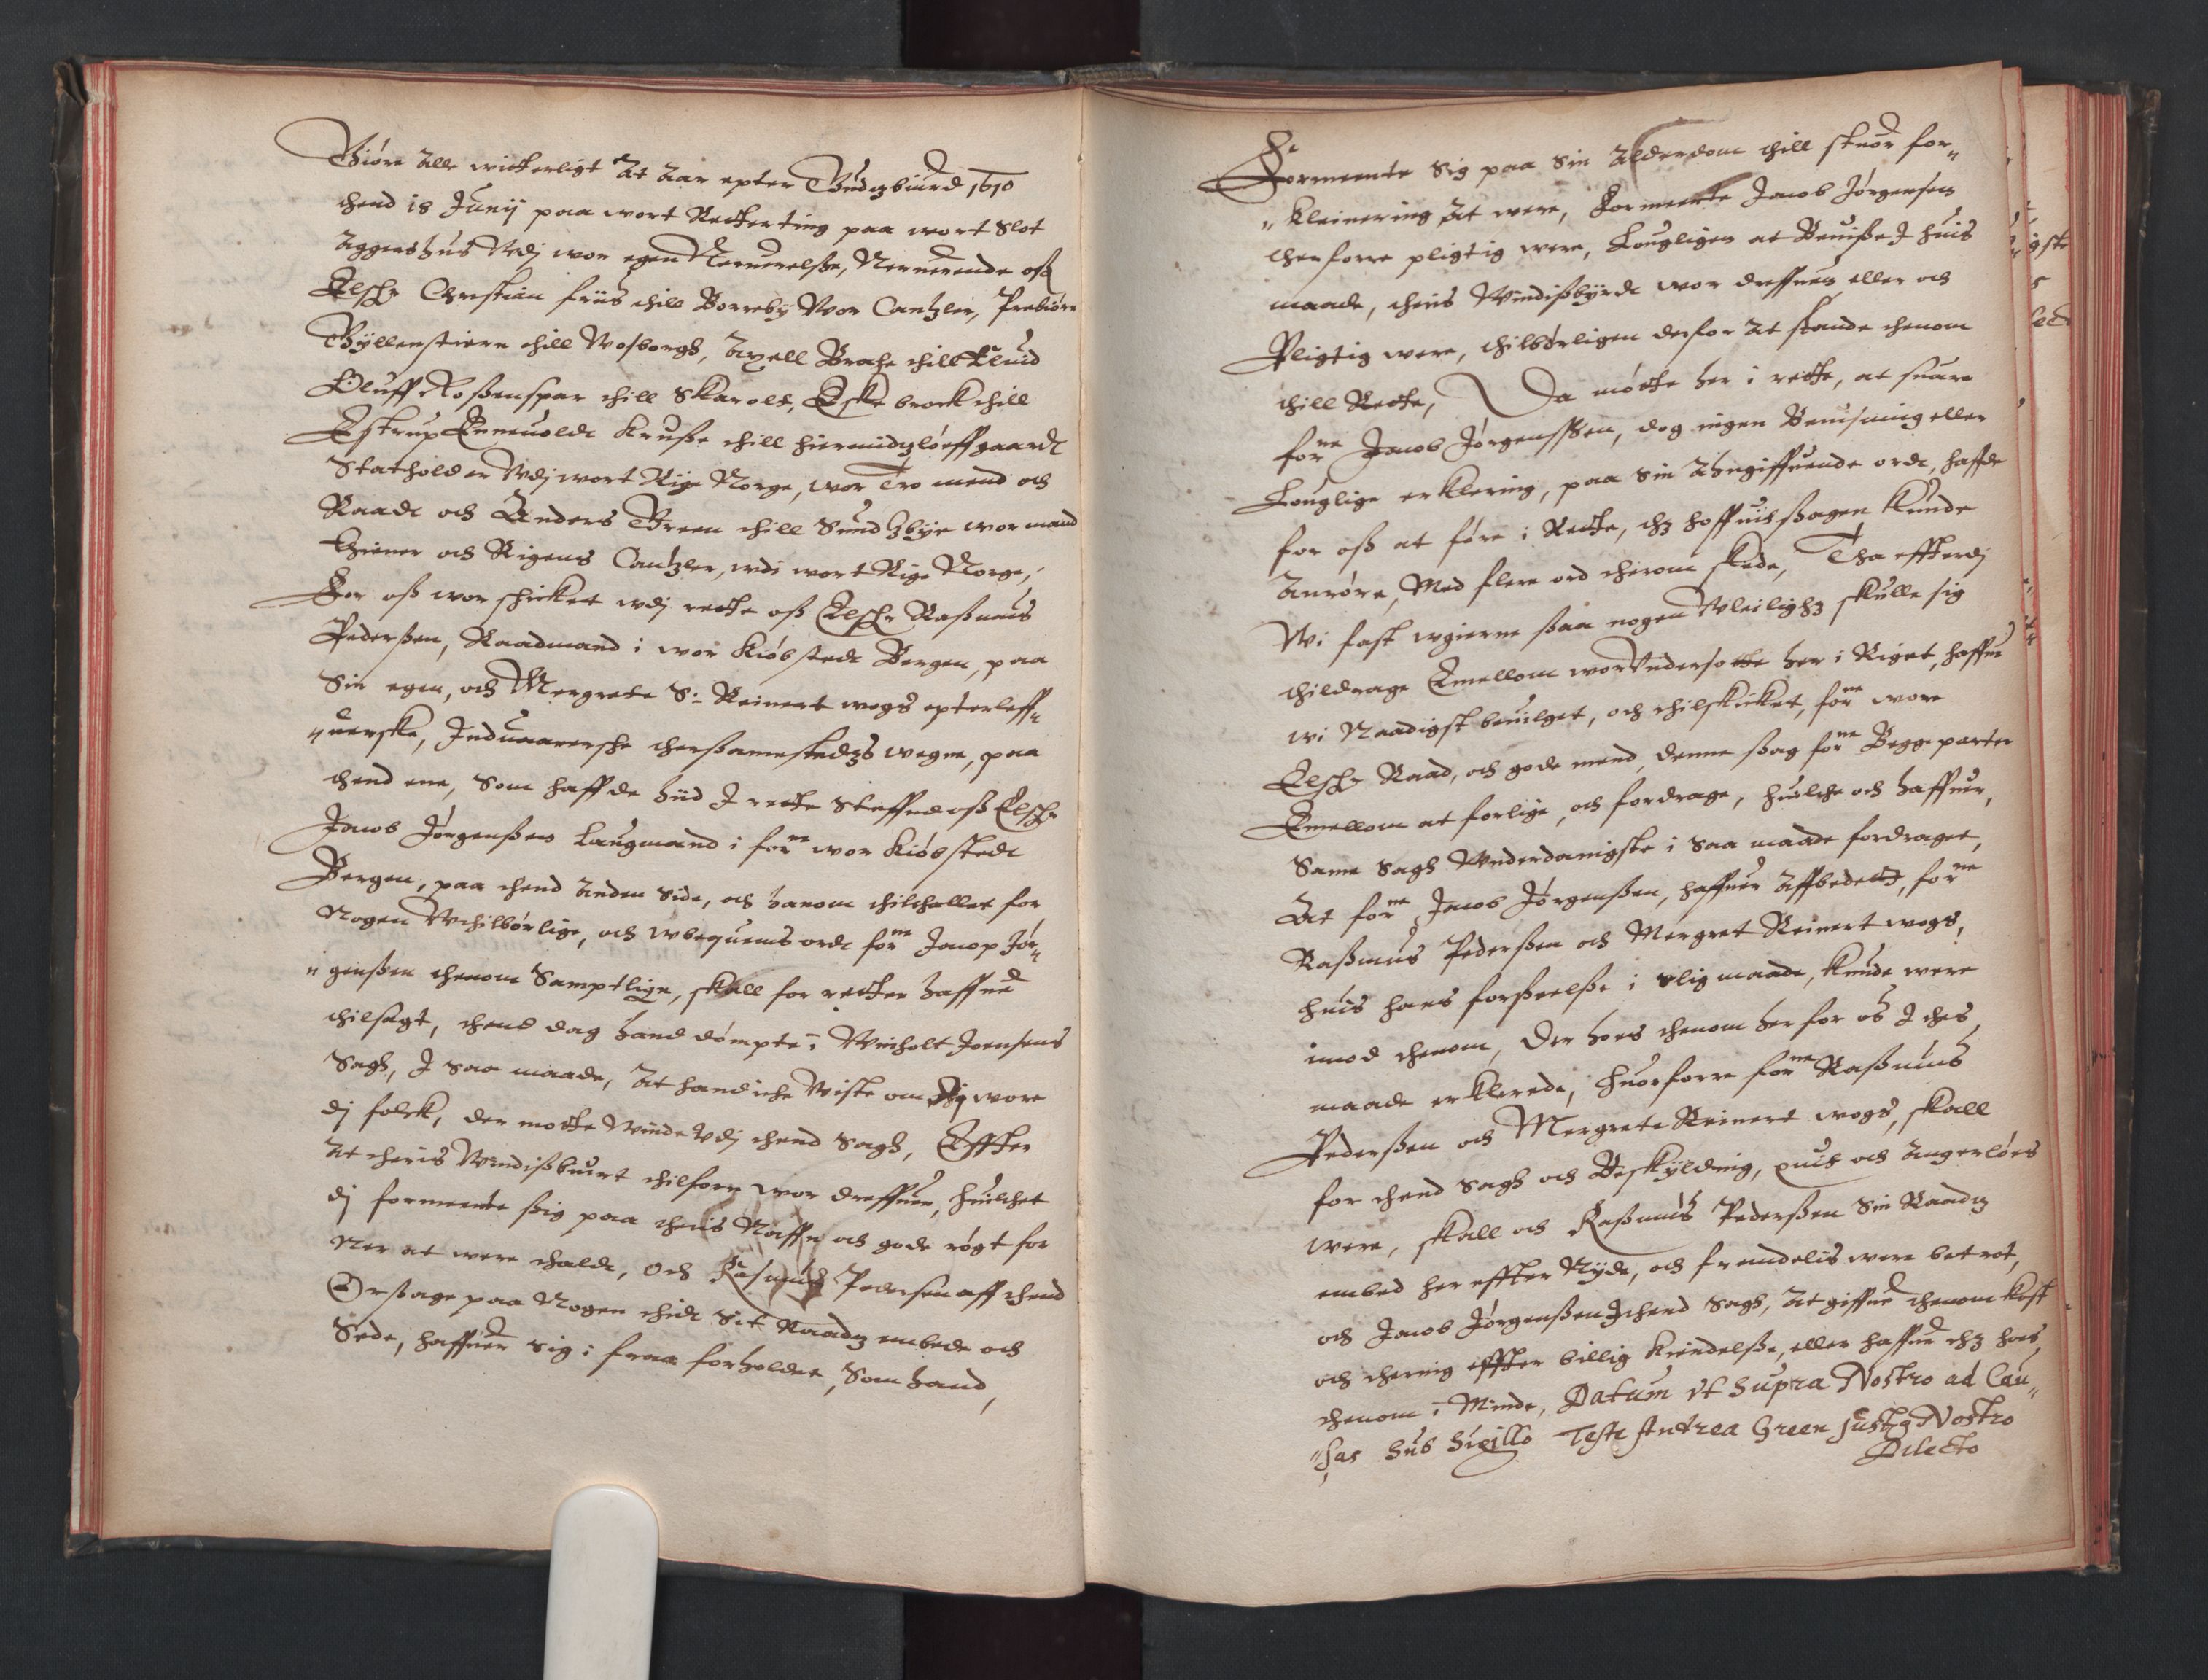 Giöre alle witterligt At Aar epter Gudtz biurd 1610
thend 18 Junij paa wort Retterting paa wort Slot
Aggershus Wdj wor egen Neruerelsse, Neruerende oss
Elsche Christian friis thill Borreby Wor Cantzler, Prebiörn
Gyllenstiern thill Wosborgh, Axell Brahe thill Eluid
Oluff Rossenspar thill Skarolt, Eske brock thill
Estrup Enneuoldt Krusse thill hiermidtzlöffgaardt
Statholder Wdj wort Rige Norge, wor Tro mend och
Raadt och Anders Green thill Sundzbye wor mand
thiener och Rigens Cantzler, wdi wort Rige Norge,
For oss wor schicket wdj rette oss Elsche Rassmus
Pederssen, Raadmand i wor Kiöbstedt Bergen, paa
Sin egen, och Mergrete S: Reinert wogs epterleff„
„uerske, Induaanersche thersammestedtzs wegne, paa
thend ene, Som haffde hiid I rette Steffned oss Elsche
Jacob Jörgenssen laugmand i forne wor Kiöbstedt
Bergen, paa thend Anden Side, och hanom thilthallet for
Nogen Wthilbörlige, och wbequems ordt forne Jacop Jör„
„genssen thenom Samptlige, skall for retten haffue
thilsagt, thend dag hand dömpte i Winholt Joensens
Sagh, I saa maade, At hand iche Wiste om dig wore
dj folck, der motte Winde Wdj thend Sagh, Effter
At theris Windissbuirt thilforn wor dreffuen, huilchet
dj formeente ssig paa theris Naffn och gode rögt for
Ner at were thaldt, Och Rasmus Pedersen aff thend
Orssage paa Nogen thidt Sit Raadtz embede och
Sede, haffuer sig i fraa forholdet, Som hand,
Formeente Sig paa Sin Alderdom thill stuor for„
„kleinering At were, Formeente Jacob Jörgensen
therforre pligtig were, Louglligen at Beuisse I huis
maade, theris Windissbyrdt wor dreffuen eller och
Pligtig were, thilbörligen derfor At stande thenom
thill Rette, Da mötte her i rette, at suare
forne Jacob Jörgenssen, dog ingen Beuisning eller
Louglige erklering, paa Sin Ahngiffuende ordt, haffde
for oss at före i Rette, thz hoffuitssagen kunde
Anröre, Med flere ord therom skede, Tha effterdj
Wi fast wgierne ssaa nogen Wleilighz skulle sig
thildrage Emellom wor Undersotte her i Riget, haffuer
wi Naadigst beuilget, och thilskicket, forne wore
Elsche Raad, och gode mend, denne ssag forne Begge parter
Emellom at forlige, och fordrage, huilche och haffuer,
Same Sagh Wnderdanigste i Saa maade fordraget,
At forne Jacob Jörgenssen, haffuer Affbedett, forne
Rassmus Pederssen och Mergret Reinert wogs,
huis hans forsseelsse i slig maade, kunde were
imod thenom, Der hoes thenom her for os I thes
maade erklerede, huorforre forne Rassmus
Pederssen och Mergrete Reinert wogs, skall
for thend Sagh och Beskyldning, quit och Angerlöes
were, skall och Rassmus Pederssen Sin Raadtz
embed her effter Nyde, och fremdelis were betrot,
och Jacob Jörgenssen I thend Sagh, At giffue thenom kost
och thering effter billig kiendelsse, eller haffue thz hoes
thenom i Minde, Datum ut Supra Nostro ad Cau„
„sas Sub Sigillo Teste Andrea Green Justz Nostro
Dilecto